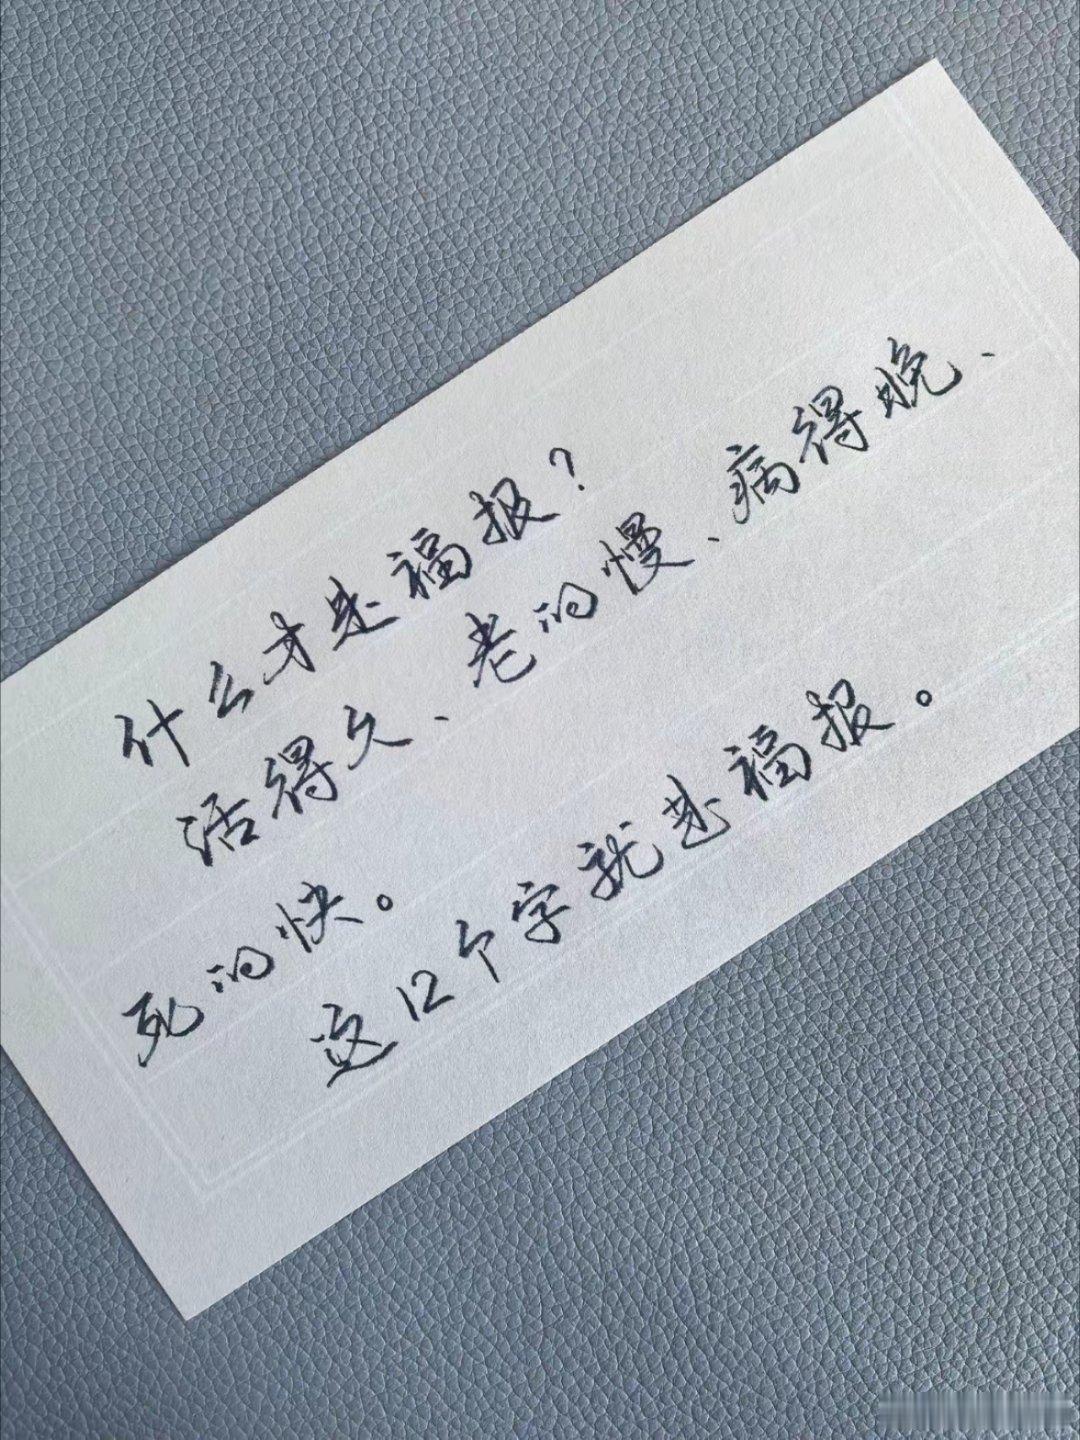 什么才是福报？
活得久、老的慢、病得晚、
死的快。
这12个字就是福报。